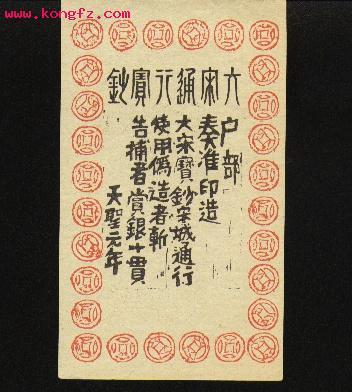 www.kongfz.com
大宋通行寶鈔
户部
奏准印造
大宋寶鈔宋城通行
使用僞造者斬
告捕者賞銀十貫
天聖元年